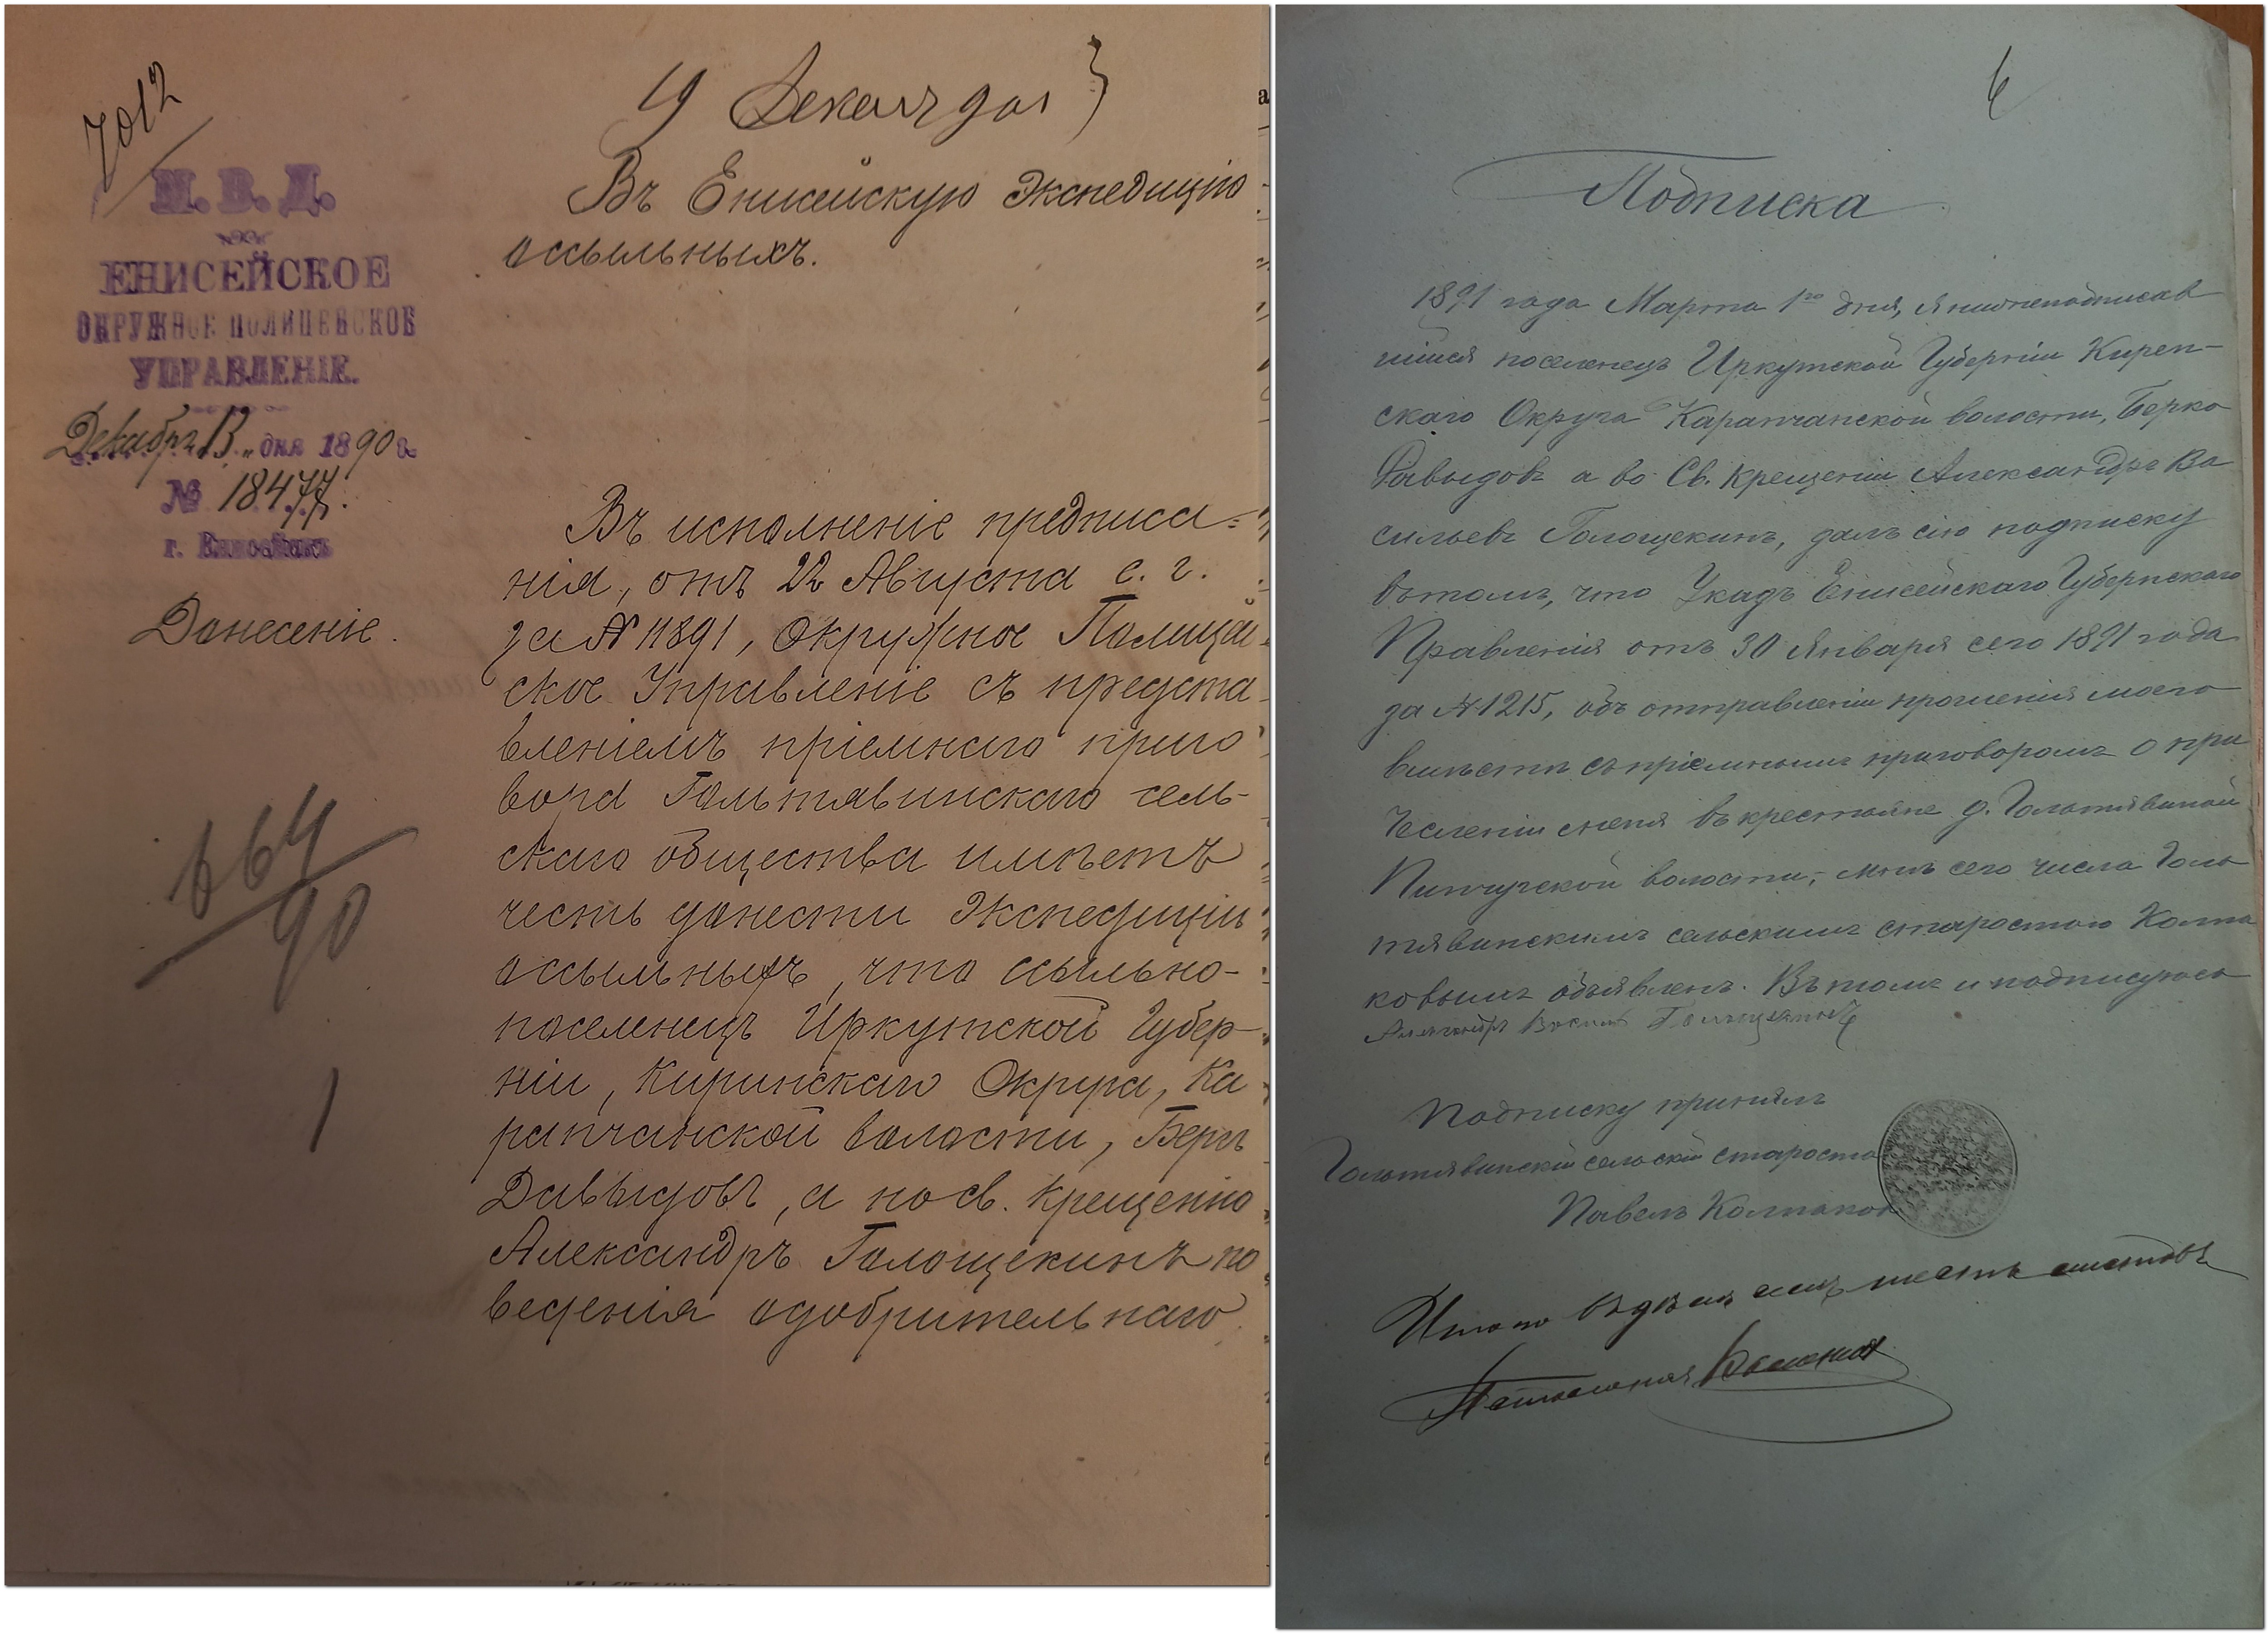 7012
М. В. Д.
ЕНИСЕЙСКОЕ
ОКРУЖНОЕ ПОЛИЦЕЙСКОЕ
УПРАВЛЕНІЕ.
Декабря 13 „ дня 1890 г.
№ 18477.
г. Енисейскъ
Донесеніе.
664
90
1
19 Декабря
Въ Енисейскую Экспедицію
о ссыльныхъ.
Въ исполненіе предписа=
нія, отъ 22 Августа с. г.
за № 11891, Окружное Полицей
ское Управленіе съ предста
вленіемъ пріемнаго приго
вора Гольтявинскаго сель-
скаго общества имѣетъ
честь донести Экспедиціи
о ссыльныхъ, что ссыльно-
поселенецъ Иркутской Губер-
ніи, Киринскаго Округа, Ка
рапчанской волости, Беръ
Давыдовъ, а по св. крещенію
Александръ Голощекинъ по
веденія одобрительнаго
6
Подписка
1891 года Марта 1го дня, я нижеподписав
шійся поселенецъ Иркутской Губерніи Кирен-
скаго Округа Карапчанской волости, Берко
Давыдовъ а во Св. крещеніи Александръ Ва
сильевъ Голощекинъ, далъ сію подписку
въ томъ, что Указъ Енисейскаго Губернскаго
Правленія отъ 30 Января сего 1891 года
за № 1215, объ отправленіи прошенія моего
вмѣстѣ съ пріемнымъ приговоромъ о при
численіи меня въ крестьяне д. Гольтявиной
Пинчугской волости, мнѣ сего числаГоль
тявинскимъ сельскимъ старостою Колпа
ковымъ объявленъ. Въ томъ и подписуюсь
Александръ Васильевъ Голощекинъ
Подписку принялъ
Гольтявинскій сельскій староста
Павелъ Колпаков
Итого въ дѣлѣ семъ шесть листовъ